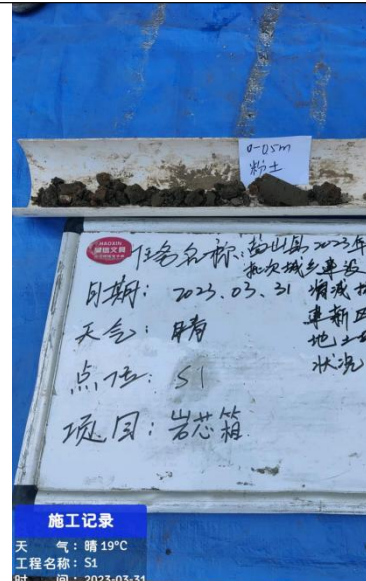 0-0.5m
粉土
任务名称: 盐山县2023年
批次城乡建设
日期: 2023.03.31 增减挂
建新区
天气: 晴
地土
状况
点位: S1
项目: 岩芯箱
施工记录
天 气: 晴 19°C
工程名称: S1
时 间: 2023-03-31